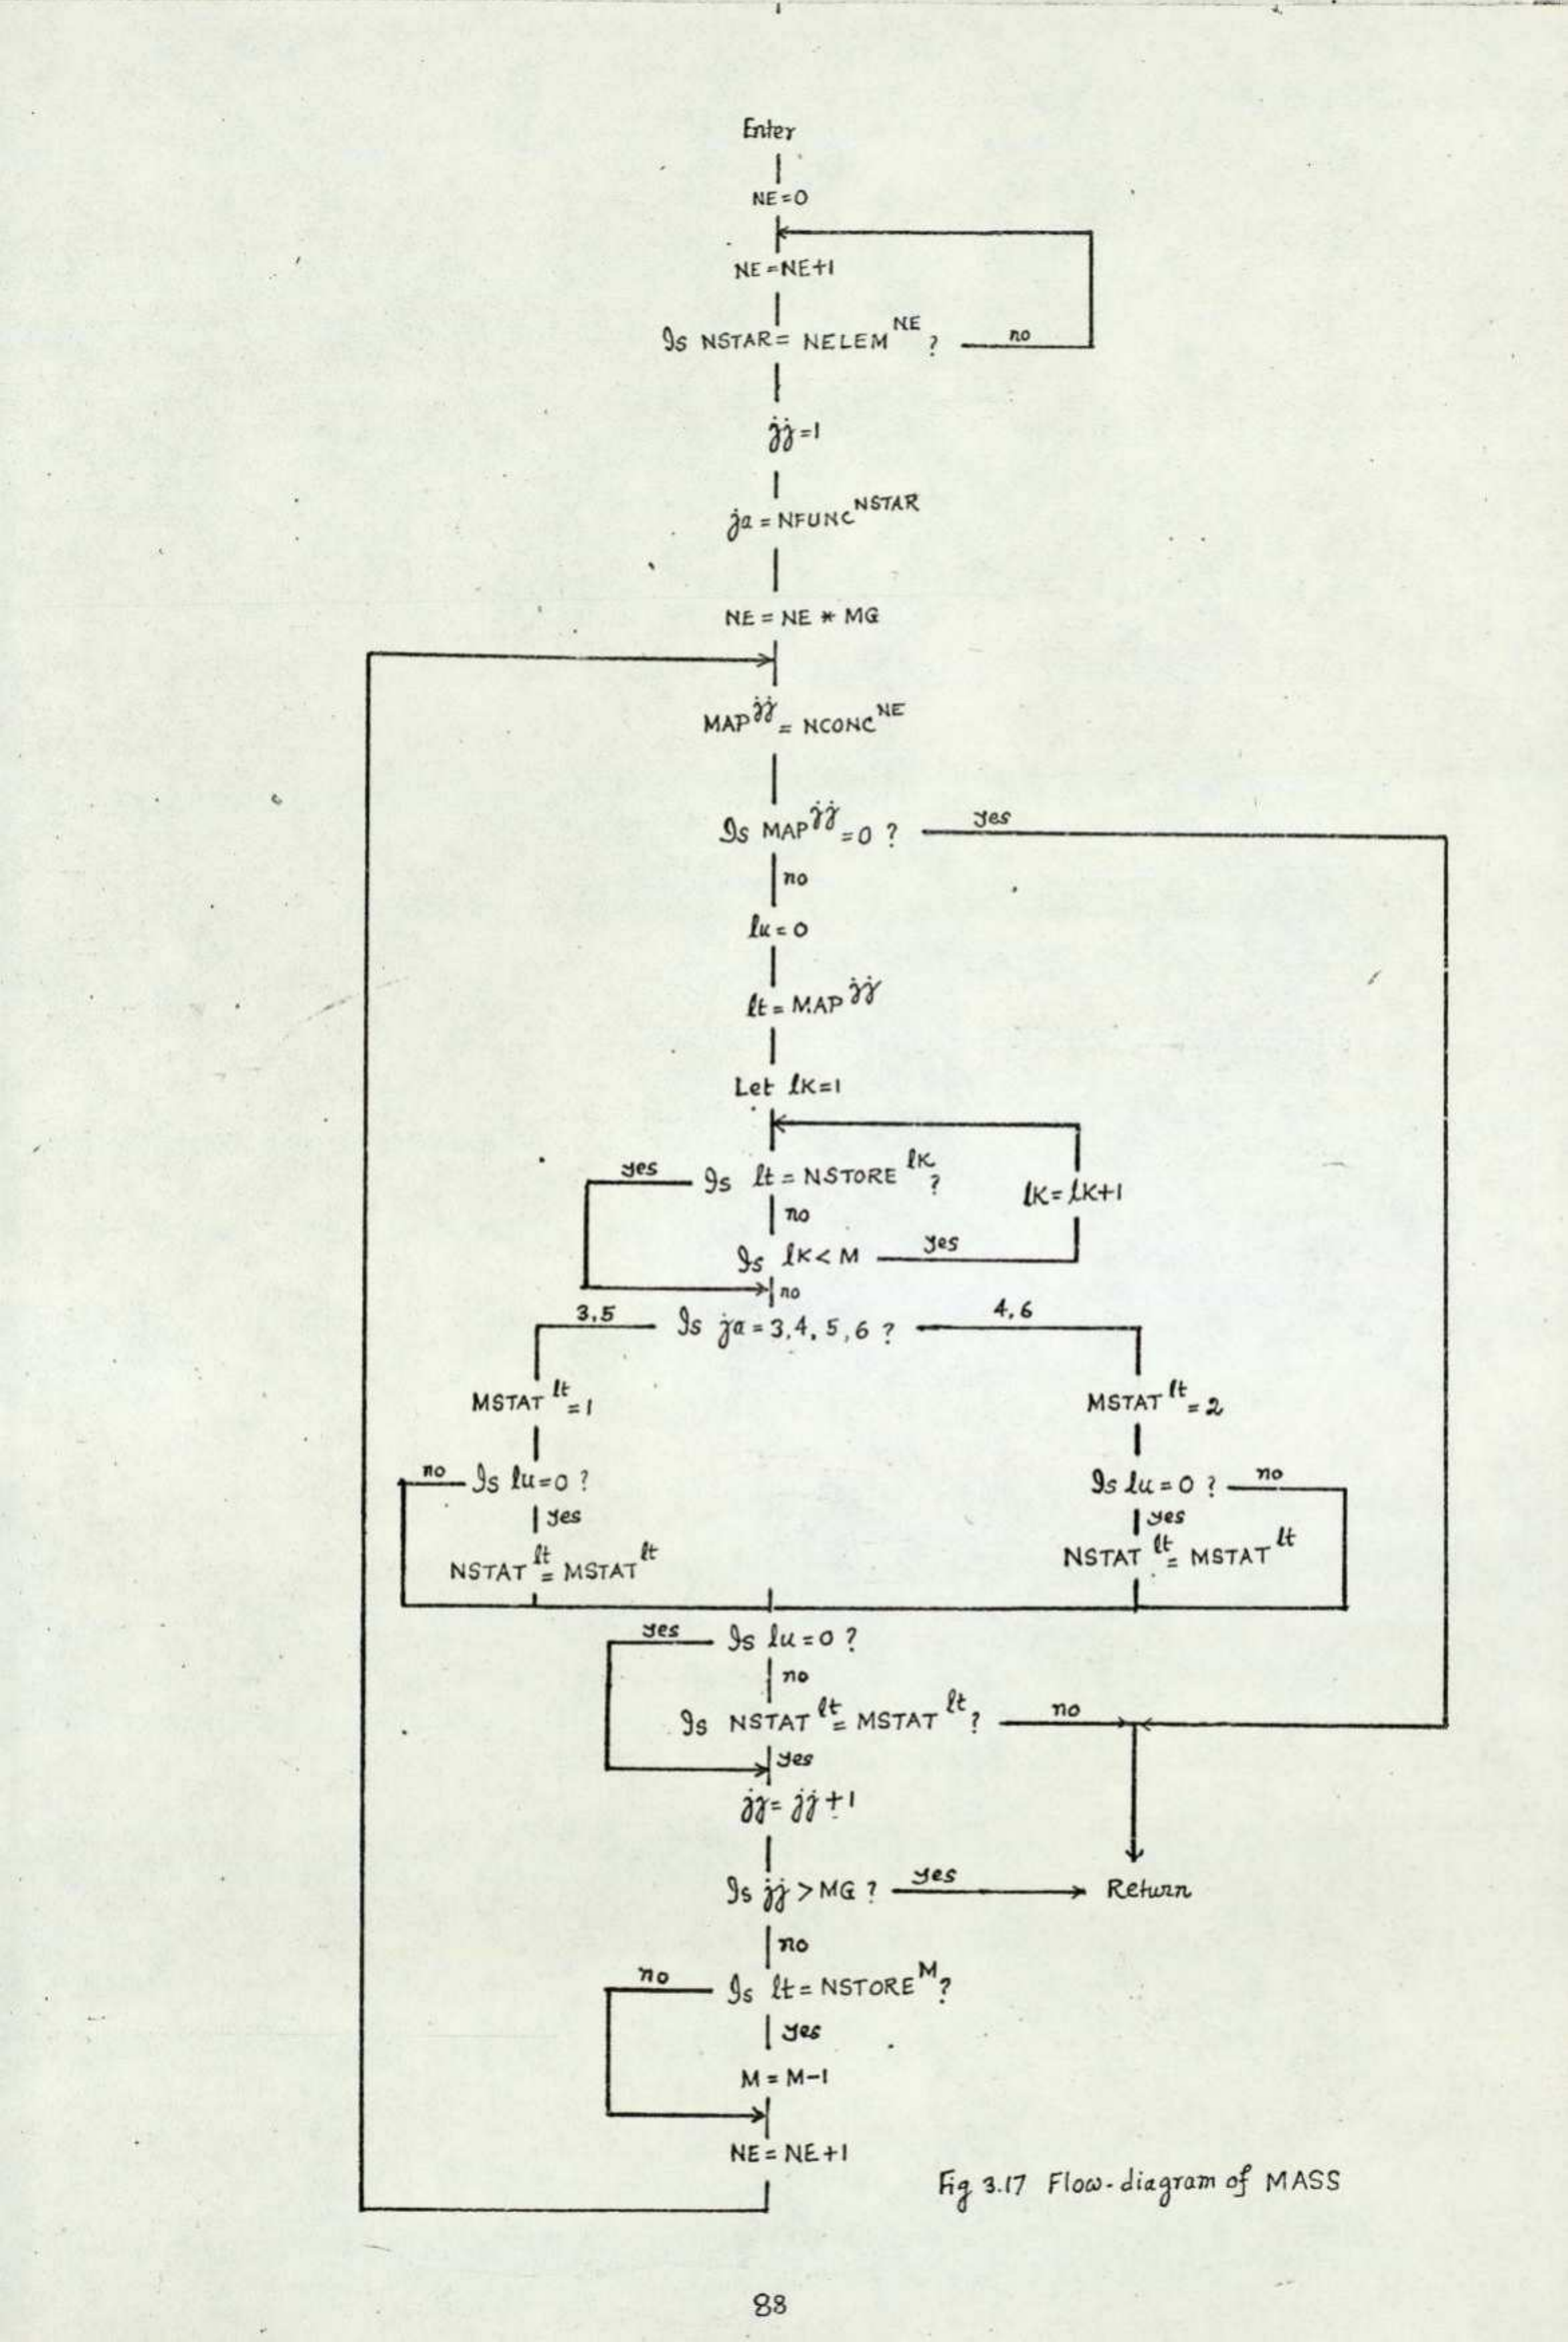 Enter
NE=0
NE=NE+1
Is NSTAR= NELEM^NE ?
no
jj=1
ja=NFUNC^NSTAR
NE=NE*MG
MAP^jj=NCONC^NE
Is MAP^jj=0 ?
yes
no
lu=0
lt=MAP^jj
Let lK=1
yes
Is lt=NSTORE^lK ?
lK=lK+1
no
Is lK<M
yes
no
3,5
Is ja=3,4,5,6 ?
4,6
MSTAT^lt=1
MSTAT^lt=2
no
Is lu=0 ?
Is lu=0 ?
no
yes
yes
NSTAT^lt=MSTAT^lt
NSTAT^lt=MSTAT^lt
yes
Is lu=0 ?
no
Is NSTAT^lt=MSTAT^lt ?
no
yes
jj=jj+1
Is jj>MG ?
yes
Return
no
no
Is lt=NSTORE^M ?
yes
M=M-1
NE=NE+1
Fig 3.17 Flow-diagram of MASS
88